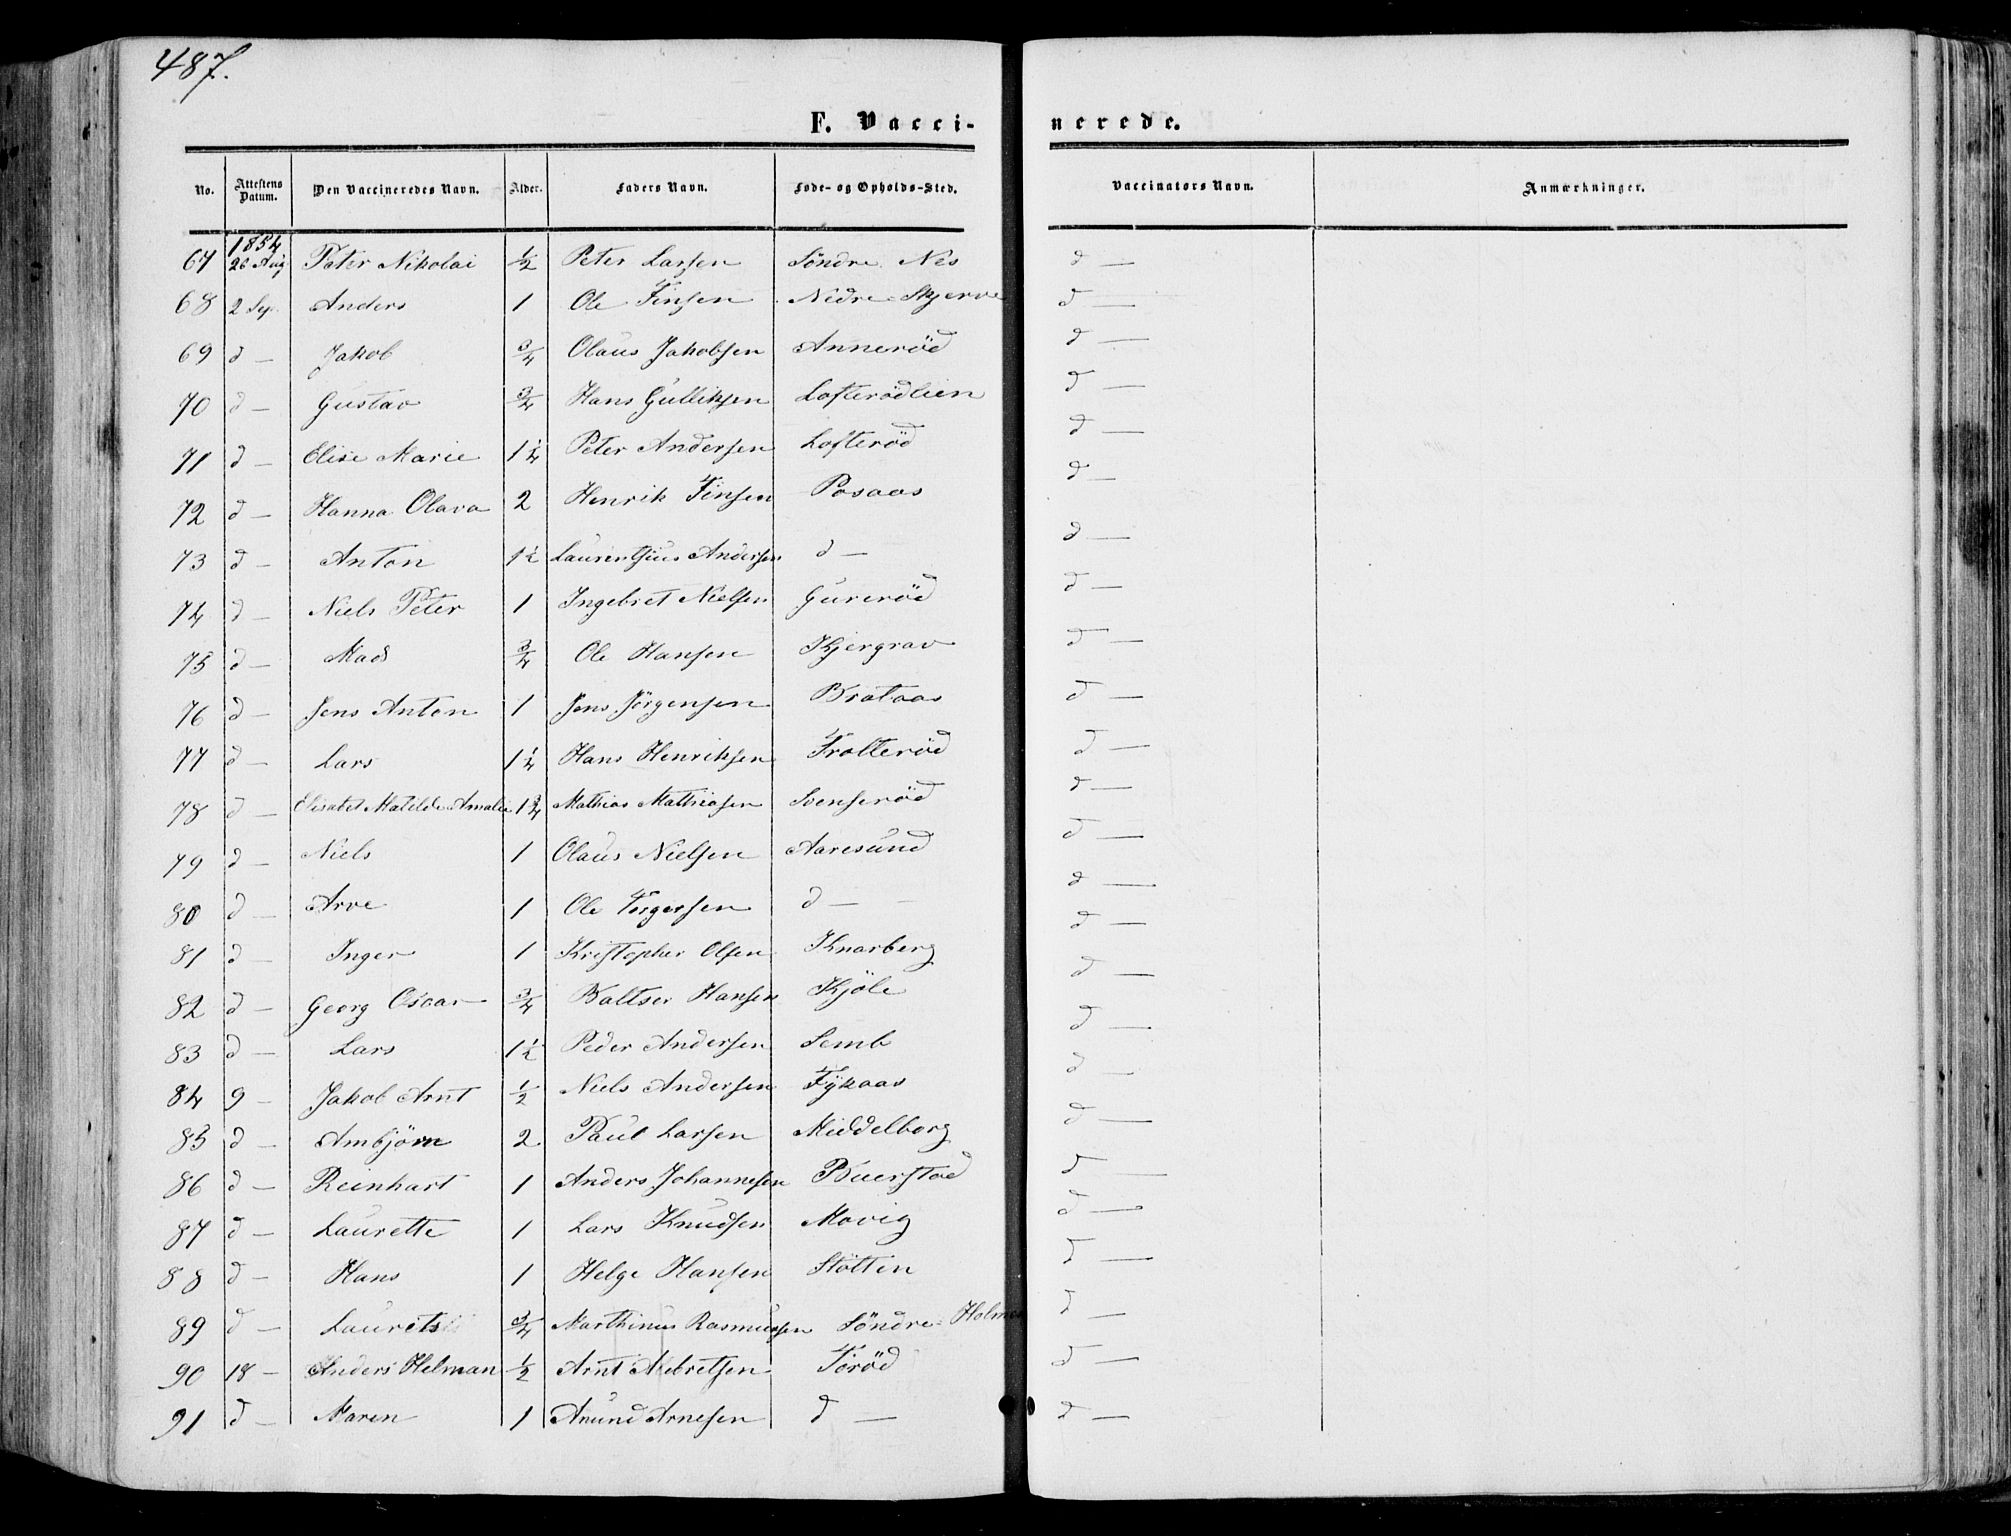 487.
F. Vacci- nerede.
No. Attestens Datum. Den Vaccineredes Navn. Alder. Faders Navn. Føde- og Opholds-Sted. Vaccinators Navn. Anmærkninger.
1854
67 26 Aug Peter Nikolai ½ Peter Larsen Söndre Nes d —
68 2 Sep. Anders 1 Ole Finsen Nedre Skjerve d —
69 d — Jakob ¾ Olaus Jakobsen Annerød d —
70 d — Gustav ¾ Hans Gulliksen Lofterødlien d —
71 d — Elise Marie 1¼ Peter Andersen Lofterød d —
72 d — Hanna Olava 2 Henrik Finsen Posaas d —
73 d — Anton 1½ Laurentsius Andersen d — d —
74 d — Niels Peter 1 Ingebret Nielsen Gurerød d —
75 d — Mads ¾ Ole Hansen Kjergrav d —
76 d — Jens Anton 1 Jens Jörgensen Brataas d —
77 d — Lars 1¼ Hans Henriksen Trolterød d —
78 d — Elisabet Matilde Amalie 1¾ Mathias Mathiasen Svenserød d —
79 d — Niels 1 Olaus Nielsen Aaresund d —
80 d — Arve 1 Ole Torgersen d — d —
81 d — Inger 1 Kristopher Olsen Knarberg d —
82 d — Georg Oscar ¾ Baltser Hansen Kjöle d —
83 d — Lars 1½ Peder Andersen Semb d —
84 9 — Jakob Arnt ½ Niels Andersen Fykaas d —
85 d — Ambjørn 2 Paul Larsen Middelborg d —
86 d — Reinhart 1 Anders Johannesen Buerstad d —
87 d — Laurette 1 Lars Knudsen Movig d —
88 d — Hans 1 Helge Hansen Stöttin d —
89 d — Laurits ¾ Marthinus Rasmussen Söndre Holmen d —
90 18 — Anders Helman ½ Arnt Albretsen Torød d —
91 d — Maren 1 Anund Arnesen d — d —